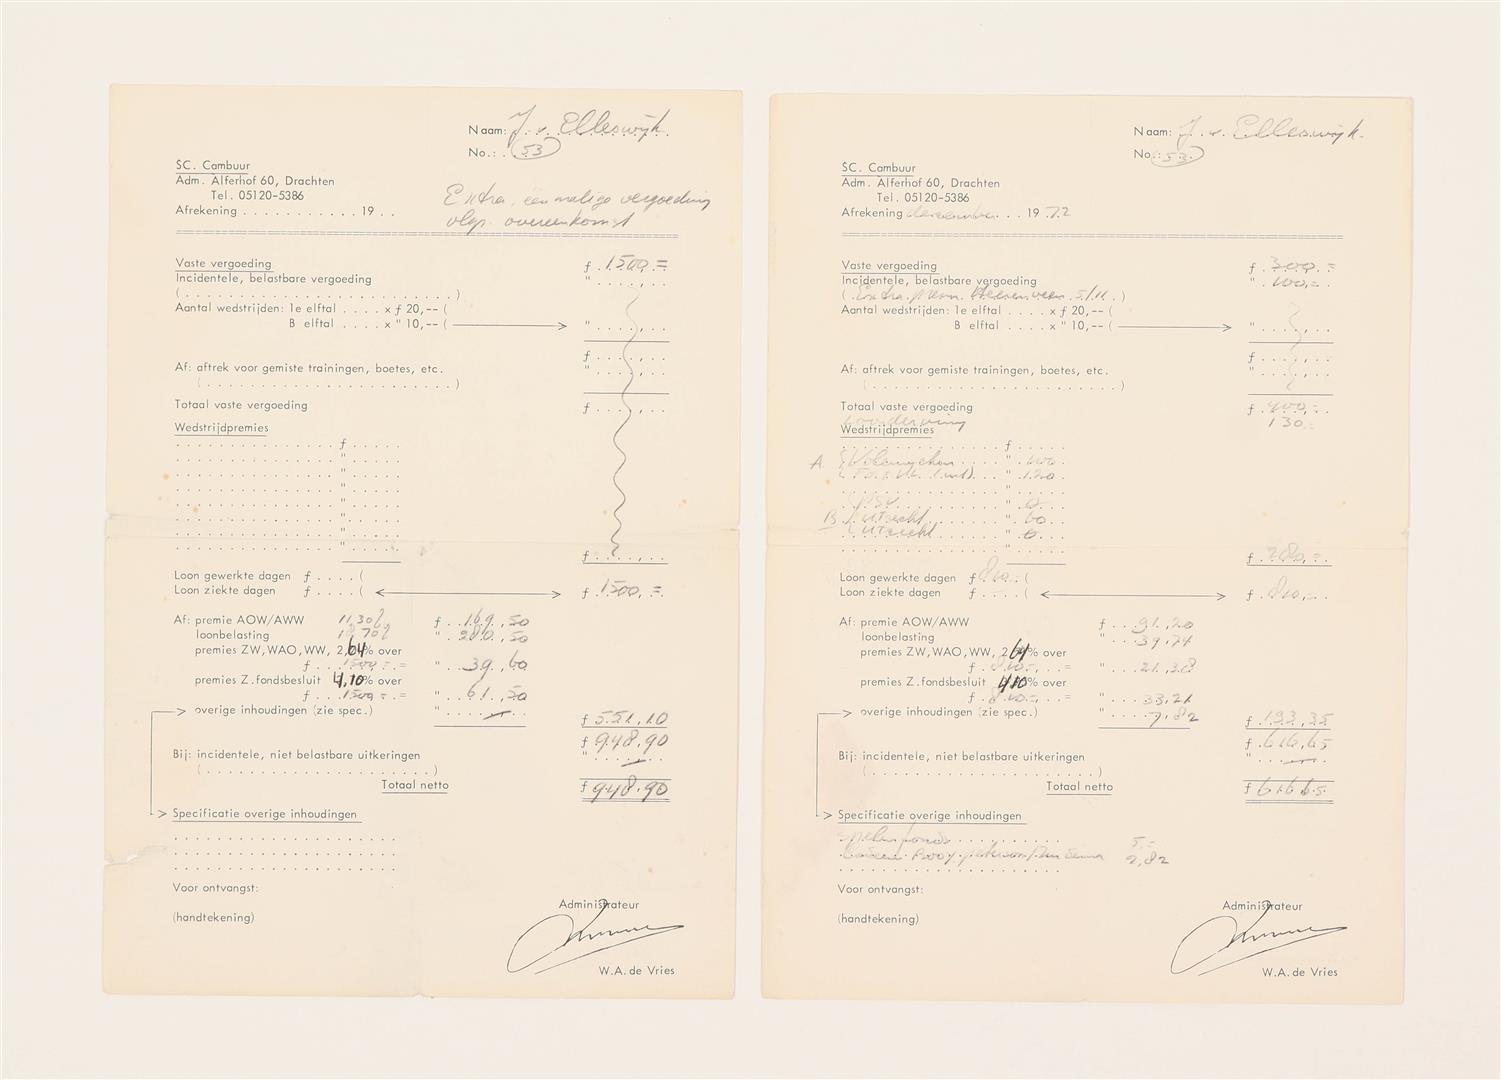 Naam: J. v. Elleswijk.
No.: . 53
SC. Cambuur
Adm. Alferhof 60, Drachten
Tel. 05120-5386
Afrekening . . . . . . . . . . . 19 . .
Extra éénmalige vergoeding
vlgs. overeenkomst
Vaste vergoeding f 1500,=
Incidentele, belastbare vergoeding " . . . . , . .
( . . . . . . . . . . . . . . . . . . . . . . . . . . )
Aantal wedstrijden: 1e elftal . . . . x f 20,-- (
B elftal . . . . x " 10,-- ( " . . . . , . .
f . . . . , . .
Af: aftrek voor gemiste trainingen, boetes, etc. " . . . . , . .
( . . . . . . . . . . . . . . . . . . . . . . . . )
Totaal vaste vergoeding f . . . . , . .
Wedstrijdpremies
. . . . . . . . . . . . . . . . f . . . . .
f . . . . , . .
Loon gewerkte dagen f . . . . (
Loon ziekte dagen f . . . . ( f 1500,=
Af: premie AOW/AWW 11,30% f 169,50
loonbelasting 18,70% " 280,50
premies ZW,WAO,WW, 2,64% over
f 1500,= = " 39,60
premies Z.fondsbesluit 4,10% over
f 1500,= = " 61,50
overige inhoudingen (zie spec.) " . . . — f 551,10
f 948,90
Bij: incidentele, niet belastbare uitkeringen " —
( . . . . . . . . . . . . . . . . . . . . . . . )
Totaal netto f 948,90
Specificatie overige inhoudingen
Voor ontvangst:
(handtekening)
Administrateur
W.A. de Vries
Naam: J. v. Elleswijk.
No.: 53.
SC. Cambuur
Adm. Alferhof 60, Drachten
Tel. 05120-5386
Afrekening december . . . 19 72
Vaste vergoeding f 300,=
Incidentele, belastbare vergoeding " 100,=
( Extra prem. Heerenveen 5/11 . )
Aantal wedstrijden: 1e elftal . . . . x f 20,-- (
B elftal . . . . x " 10,-- ( " . . . . , . .
f . . . . , . .
Af: aftrek voor gemiste trainingen, boetes, etc. " . . . . , . .
( . . . . . . . . . . . . . . . . . . . . . . . . )
Totaal vaste vergoeding f 400,=
130,=
Wedstrijdpremies
. . . . . . . . . . . . . . . . f . . . . .
A { " 100
" 120
PSV " 0
B { Utrecht " 60
Utrecht " 0
f 280,=
Loon gewerkte dagen f 810 . (
Loon ziekte dagen f . . . . ( f 810,=
Af: premie AOW/AWW f 91,20
loonbelasting " 39,74
premies ZW,WAO,WW, 2,64% over
f 810,= = " 21,38
premies Z.fondsbesluit 4,10% over
f 810,= = " 33,21
overige inhoudingen (zie spec.) " 7,82 f 193,35
f 616,65
Bij: incidentele, niet belastbare uitkeringen " —
( . . . . . . . . . . . . . . . . . . . . . . . )
Totaal netto f 616,65
Specificatie overige inhoudingen
Spelersfonds 5,=
2,82
Voor ontvangst:
(handtekening)
Administrateur
W.A. de Vries